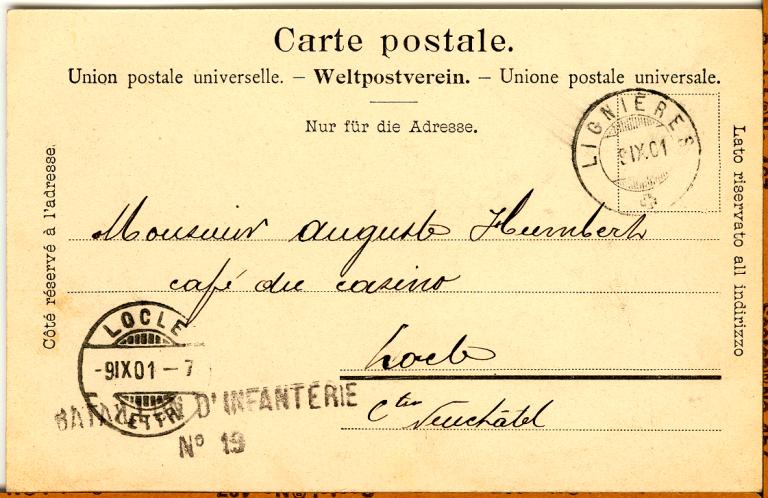 Carte postale.
Union postale universelle. – Weltpostverein. – Unione postale universale.
Nur für die Adresse.
LIGNIÈRES
9IX.01
Côté réservé à l'adresse.
Lato riservato all indirizzo
Monsieur Auguste Humbert
café du casino
LOCLE
-9IX01-7
Locle
BATAILLON D'INFANTERIE
Nº 19
Cton Neuchâtel